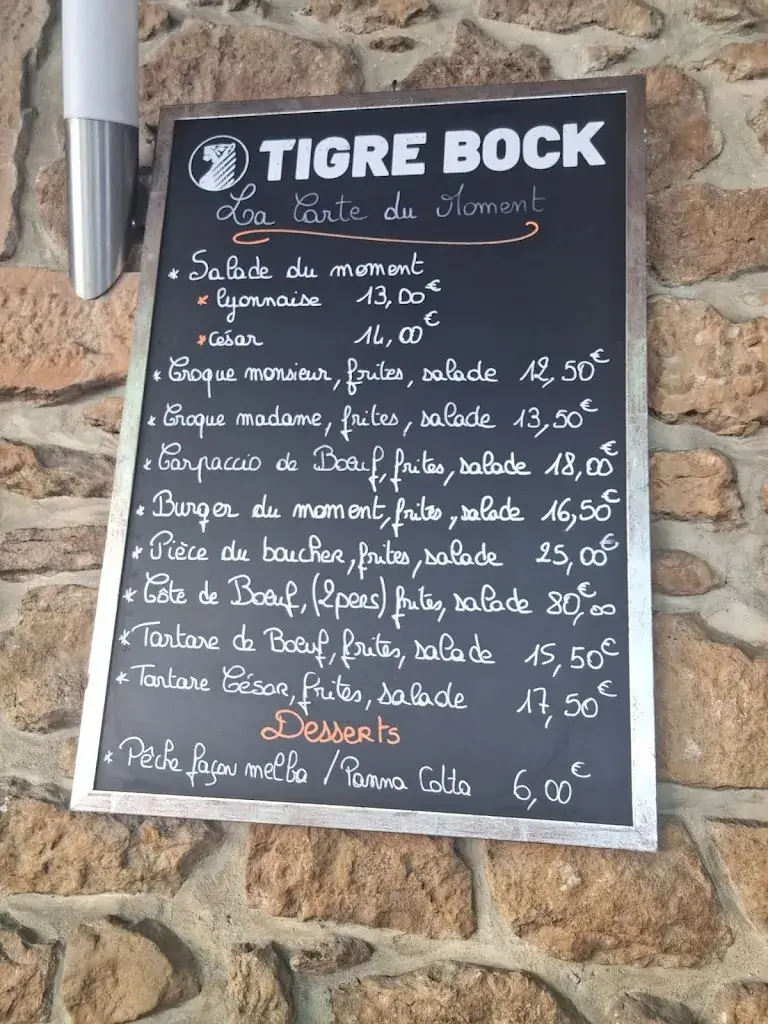 TIGRE BOCK
La Carte du Moment
* Salade du moment
* lyonnaise 13,00€
* César 14,00€
* Croque monsieur, frites, salade 12,50€
* Croque madame, frites, salade 13,50€
* Carpaccio de Boeuf, frites, salade 18,00€
* Burger du moment, frites, salade 16,50€
* Pièce du boucher, frites, salade 25,00€
* Côte de Boeuf, (2pers) frites, salade 80,00€
* Tartare de Boeuf, frites, salade 15,50€
* Tartare César, frites, salade 17,50€
Desserts
* Pêche façon melba / Panna Cotta 6,00€